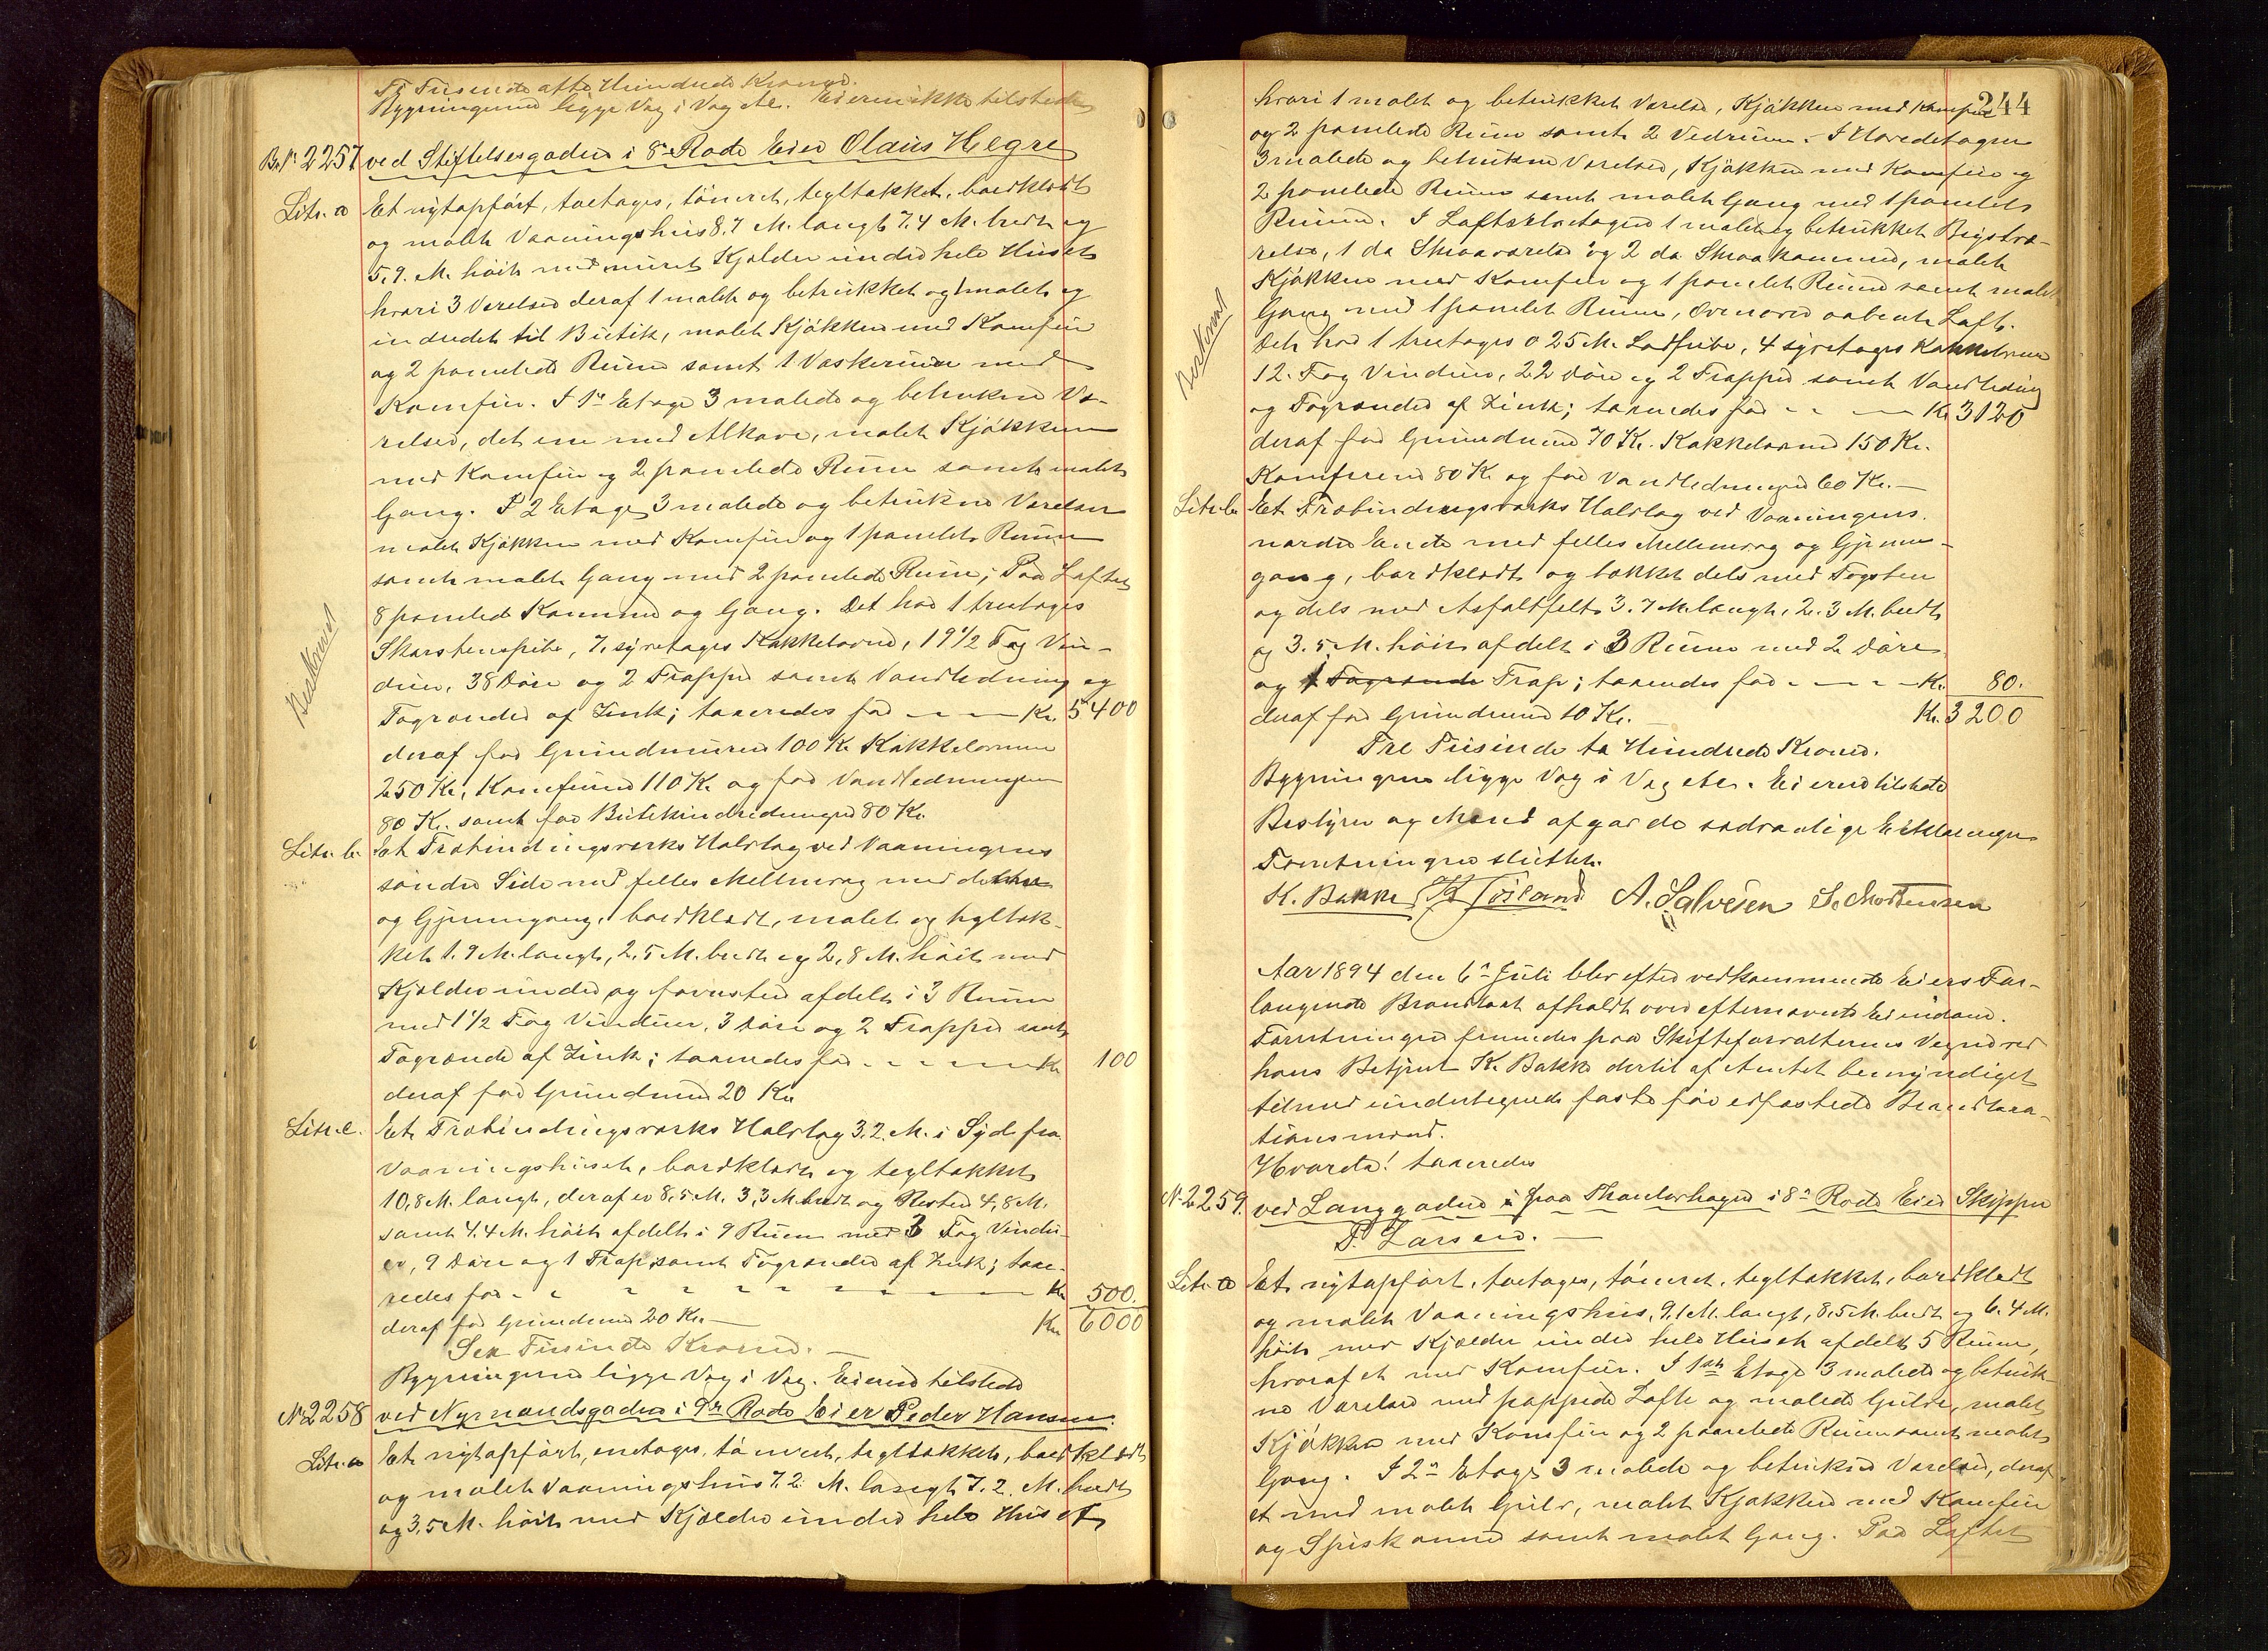 Ti Tusinde otte Hundrede Kroner.
Bygningerne ligge Væg i Væg etc. Eieren ikke tilstede
Br.Nº 2257 ved Stiftelsesgaden i 8de Rode Eier Olaus Helgre
Litr. a Et nytopført, toetages, tømret, tegltækket, bordklædt
og malet Vaaningshus 8.7 M. langt 7.4 M. bredt og
5.9. M. høit med muret Kjælder under hele Huset
hvori 3 Værelser deraf 1 malet og betrukket og 1 malet og
indredet til Butik, malet Kjøkken med Komfur
og 2 panelede Rum samt 1 Vaskerum med
Komfur. I 1ste Etage 3 malede og betrukne Væ-
relser, det ene med Alkove, malet Kjøkken
med Komfur og 2 panelede Rum samt malet
Gang. I 2 Etage 3 malede og betrukne Værelser
malet Kjøkken med Komfur og 1 panelet Rum
samt malet Gang med 2 panelede Rum; Paa Loftet
8 panelede Kammer og Gang. Det har 1 treetages
Skorstenspibe, 7. syretages Kakkelovne, 19 1/2 Fag Vin-
duer, 38 Døre og 2 Trapper samt Vandledning og
Beskrevet
Tagrender af Zink; taxeredes for - - - Kr. 5400
deraf for Grundmuren 100 Kr. Kakkelovnene
250 Kr., Komfurene 110 Kr. og for Vandledningen
80 Kr. samt for Butikindredningen 80 Kr.
Litr. b. Et Træbindingsværks Halvtag ved Vaaningens
søndre Side med felles Mellemvæg med denne
og Gjennemgang, bordklædt, malet og tegltæk-
ket 1.9 M. langt, 2.5 M. bredt og 2,8 M. høit med
Kjælder under og forresten afdelt i 3 Rum
med 1 1/2 Fag Vinduer, 3 Døre og 2 Trapper samt
Tagrende af Zink; taxeredes for - - - - - Kr. 100
deraf for Grundmur 20 Kr.
Litr. c. Et Træbindingsværks Halvtag 3.2. M. i Syd fra
Vaaningshuset, bordklædt og tegltækket
10,8 M. langt, deraf er 8,5 M. 3,3 M. bredt og Resten 4,8 M.
samt 4.4 M. høit afdelt i 9 Rum med 3 Fag Vindu-
er, 9 Døre og 1 Trap, samt Tagrender af Zink; taxe-
redes for - - - - - - - - Kr. 500.
deraf for Grundmur 20 Kr. — Kr. 6000
Sex Tusinde Kroner. —
Bygningerne ligge Væg i Væg. Eieren tilstede
Nº 2258 ved Nymandsgaden i 9de Rode Eier Peder Hansen.
Litr. a Et nytopført, enetages, tømret, tegltækket, bordklædt
og malet Vaaningshus 7.2 M. langt 7.2. M. bredt
og 3,5 M. høit med Kjælder under hele Huset
244
hvori 1 malet og betrukket Værelse, Kjøkken med Komfur
og 2 panelede Rum samt 2 Vedrum. I Hovedetagen
3 malede og betrukne Værelser, Kjøkken med Komfur og
2 panelede Rum samt malet Gang med 1 panelet
Rum. I Loftsetagen 1 malet og betrukket Kvistvæ-
relse, 1 do Skraaværelse og 2 do. Skraakammer, malet
Kjøkken med Komfur og 1 panelet Rum samt malet
Gang med 1 panelet Rum, Ovenover aabent Loft.
Beskrevet
Det har 1 treetages a 25 M. Lodpibe, 4 syretages Kakkelovne
12. Fag Vinduer, 22 Døre og 2 Trapper samt Vandledning
og Tagrender af Zink; taxeredes for - - - Kr. 3120
deraf for Grundmur 70 Kr. Kakkelovne 150 Kr.
Komfurene 80 Kr. og for Vandledningen 60 Kr. —
Litr. b. Et Træbindingsværks Halvtag ved Vaaningens
nordre Ende med felles Mellemvæg og Gjennem-
gang, bordklædt og tækket dels med Tagsten
og dels med Asfaltfelt 3.7 M. langt, 2.3 M. bredt
og 3.5 M. høit afdelt i 3 Rum med 2 Døre
og 1 Tagrende Trap; taxeredes for - - - - Kr. 80.
deraf for Grundmur 10 Kr. — Kr. 3200
Tre Tusinde to Hundrede Kroner.
Bygningerne ligge Væg i Væg etc. Eieren tilstede
Bestyrer og Mænd afgav de sædvanlige Erklæringer
Forretningen sluttet.
K. Bakke A. Salvesen S. Mortensen
Aar 1894 den 6te Juli blev efter vedkommende Eiers For-
langende Brandtaxt afholdt over efternævnte Eiendom.
Forretningen fremmedes paa Skifteforvalterens Vegne ved
hans Betjent K. Bakke dertil af Amtet bemyndiget
tilmed undertegnede faste før edfæstede Brandtaxa-
tionsmænd.
Hvorda! taxeredes
Nº 2259. ved Langgaden i paa Thaulowhagen i 8de Rode Eier Skipper
P. Larsen. —
Litr. a Et nytopført, toetages, tømret, tegltækket, bordklædt
og malet Vaaningshus, 9.1 M. langt, 8,5 M. bredt og 6.4 M.
høit med Kjælder under hele Huset afdelt 5 Rum,
hvoraf et med Komfur. I 1ste Etage 3 malede og betruk-
ne Værelser med pappede Lofte og malede Gulve, malet
Kjøkken med Komfur og 2 panelede Rum samt malet
Gang. I 2den Etage 3 malede og betrukne Værelser, deraf
et med malet Gulv, malet Kjøkken med Komfur
og Spiskammer samt malet Gang. Paa Loftet